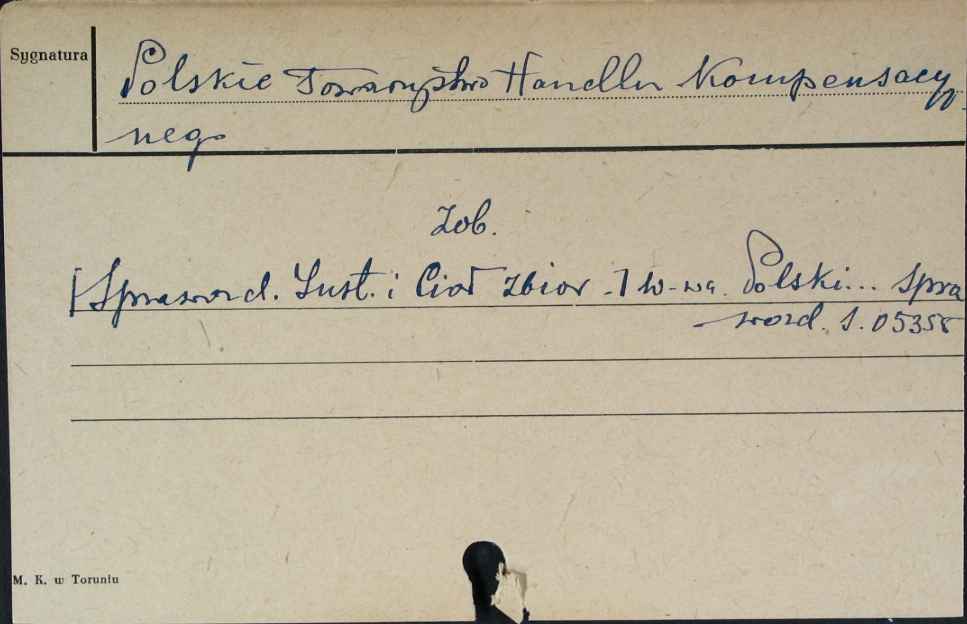 Sygnatura
Polskie Towarzystwo Handlu Kompensacyj-
nego
Zob.
[Spraword. Inst. i Ciał zbior.] W-wa. Polski... Spra
word. S. 05358
M. K. w Toruniu